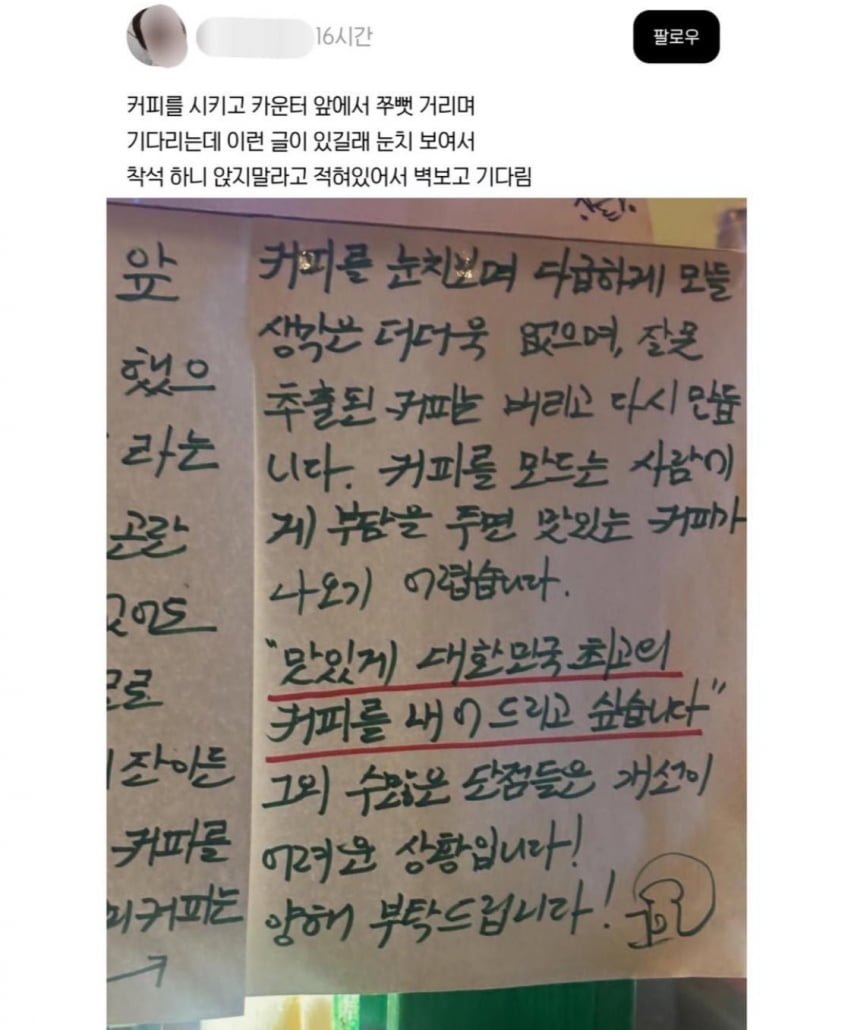 16시간
팔로우
커피를 시키고 카운터 앞에서 쭈뻣 거리며
기다리는데 이런 글이 있길래 눈치 보여서
착석 하니 앉지말라고 적혀있어서 벽보고 기다림
앞
했으
라는
곤란
모로
잔이든
커피를
커피는
→
커피를 눈치보며 다급하게 만들
생각은 더더욱 없으며, 잘못
추출된 커피는 버리고 다시 만듭
니다. 커피를 만드는 사람에
게 부담을 주면 맛있는 커피가
나오기 어렵습니다.
"맛있게 대한민국 최고의
커피를 내어드리고 싶습니다"
그외 수많은 단점들은 개선이
어려운 상황입니다!
양해 부탁드립니다!